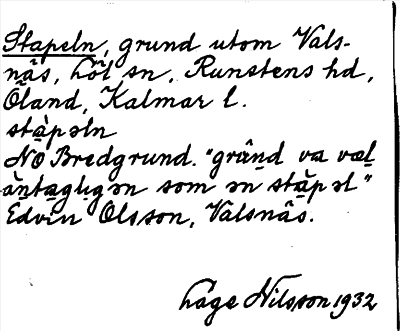 Stapeln, grund utom Vals-
näs, Löt sn, Runstens hd,
Öland, Kalmar l.
stàpəln
NO Bredgrund. "grund va væl
àntaglıgən som ən stàpəl"
Edvin Olsson, Valsnäs.
Låge Nilsson 1932